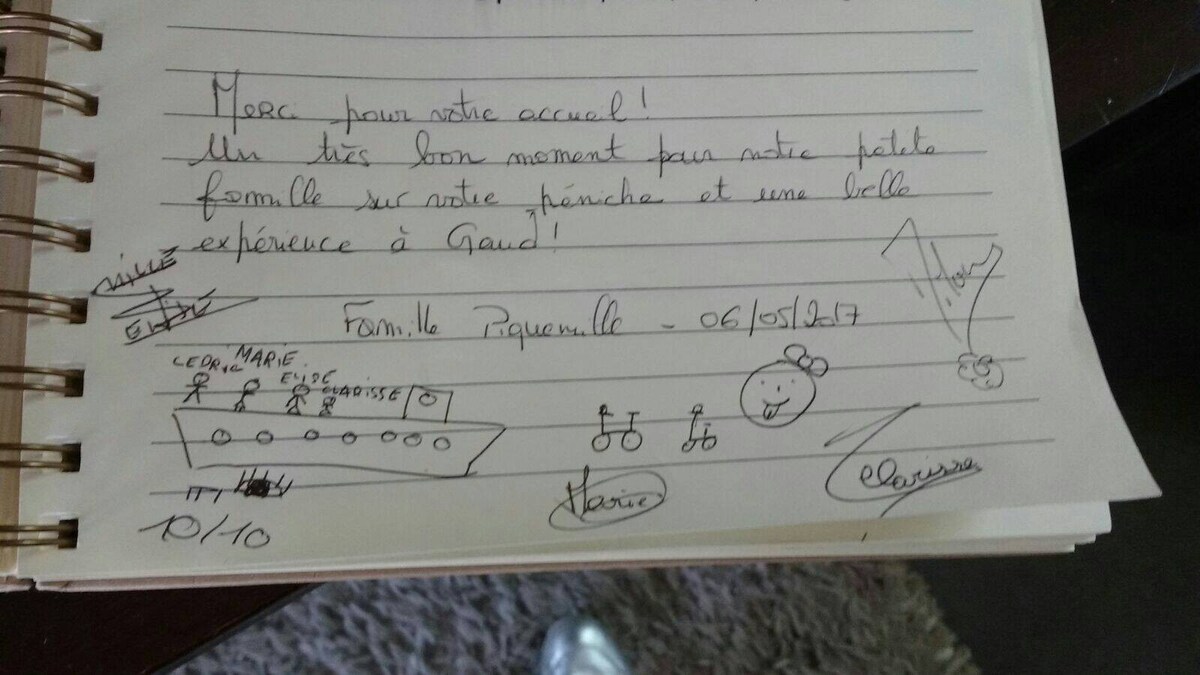 Merci pour votre accueil !
Un très bon moment pour notre petite
famille sur votre péniche et une belle
expérience à Gand !
Famille Piquemille - 06/05/2017
CEDRIC MARIE
ELISE CLARISSE
Marie
Clarisse
10/10